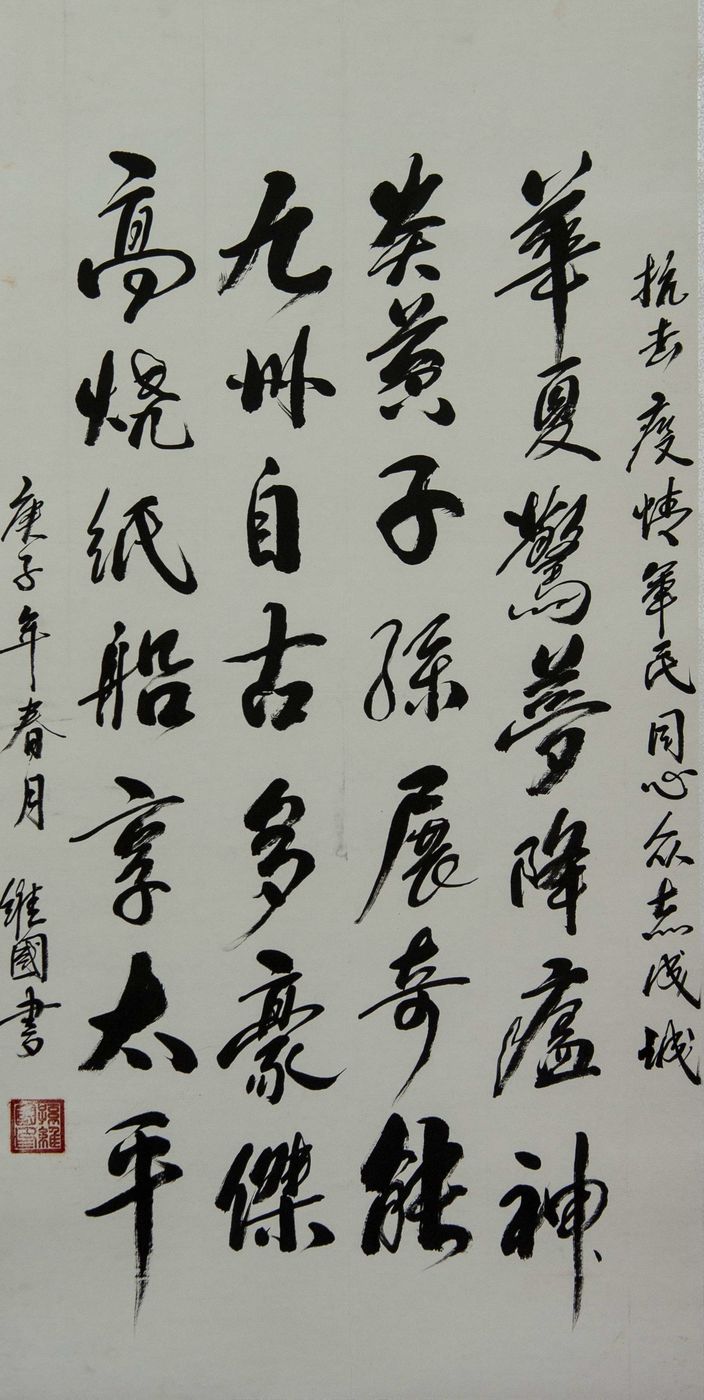 抗击疫情军民同心众志成城
華夏驚夢降瘟神
炎黄子孫展奇能
九州自古多豪傑
高烧纸船享太平
庚子年春月 維國書